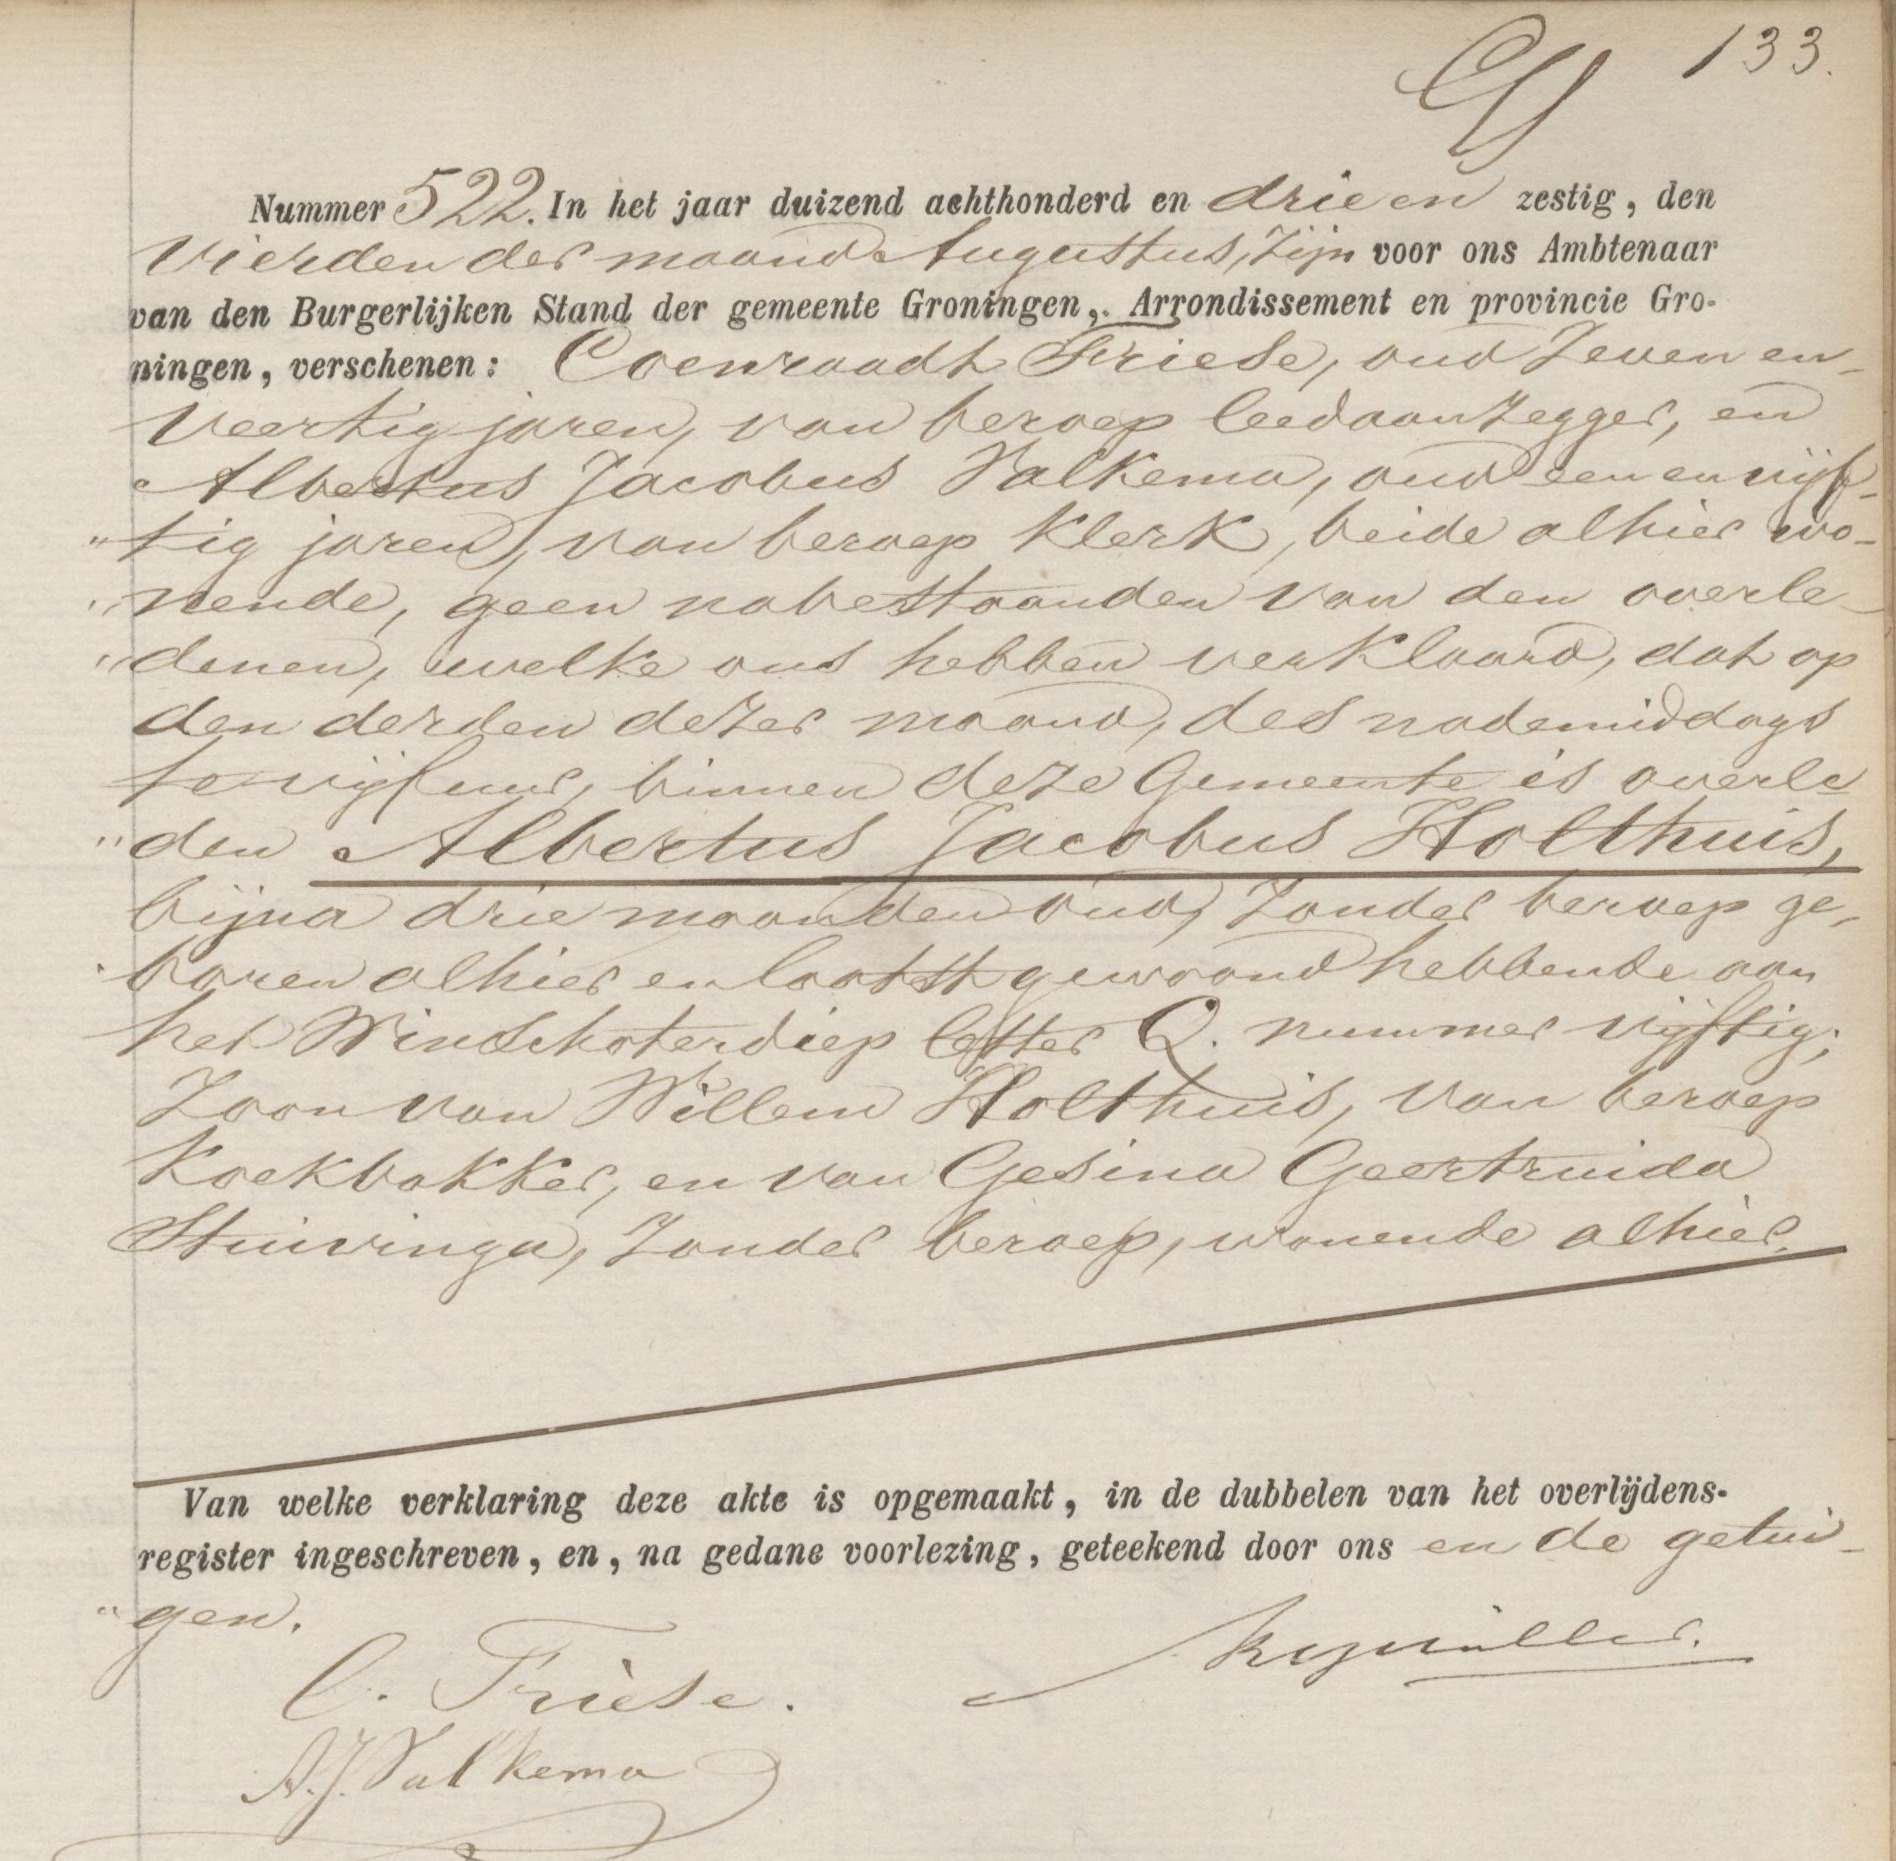 133.
Nummer 522. In het jaar duizend achthonderd en drie en zestig, den
vierden der maand Augustus, zijn voor ons Ambtenaar
van den Burgerlijken Stand der gemeente Groningen, Arrondissement en provincie Gro-
ningen, verschenen: Coenraadt Friese, oud zeven en
veertig jaren, van beroep leedaanzegger, en
Albertus Jacobus Valkema, oud een en vijf-
"tig jaren, van beroep klerk, beide alhier wo-
"nende, geen nabestaanden van den overle-
"denen, welke ons hebben verklaard, dat op
den derden dezer maand, des nademiddags
te vijf uur, binnen deze Gemeente is overle-
"den Albertus Jacobus Holthuis,
bijna drie maanden oud, zonder beroep ge-
boren alhier en laatst gewoond hebbende aan
het Windschoterdiep letter Q. nummer vijftig;
Zoon van Willem Holthuis, van beroep
Koekbakker, en van Gesina Geertruida
Stuivinga, zonder beroep, wonende alhier.
Van welke verklaring deze akte is opgemaakt, in de dubbelen van het overlijdens-
register ingeschreven, en, na gedane voorlezing, geteekend door ons en de getui-
"gen.
C. Friese.
A.J. Valkema